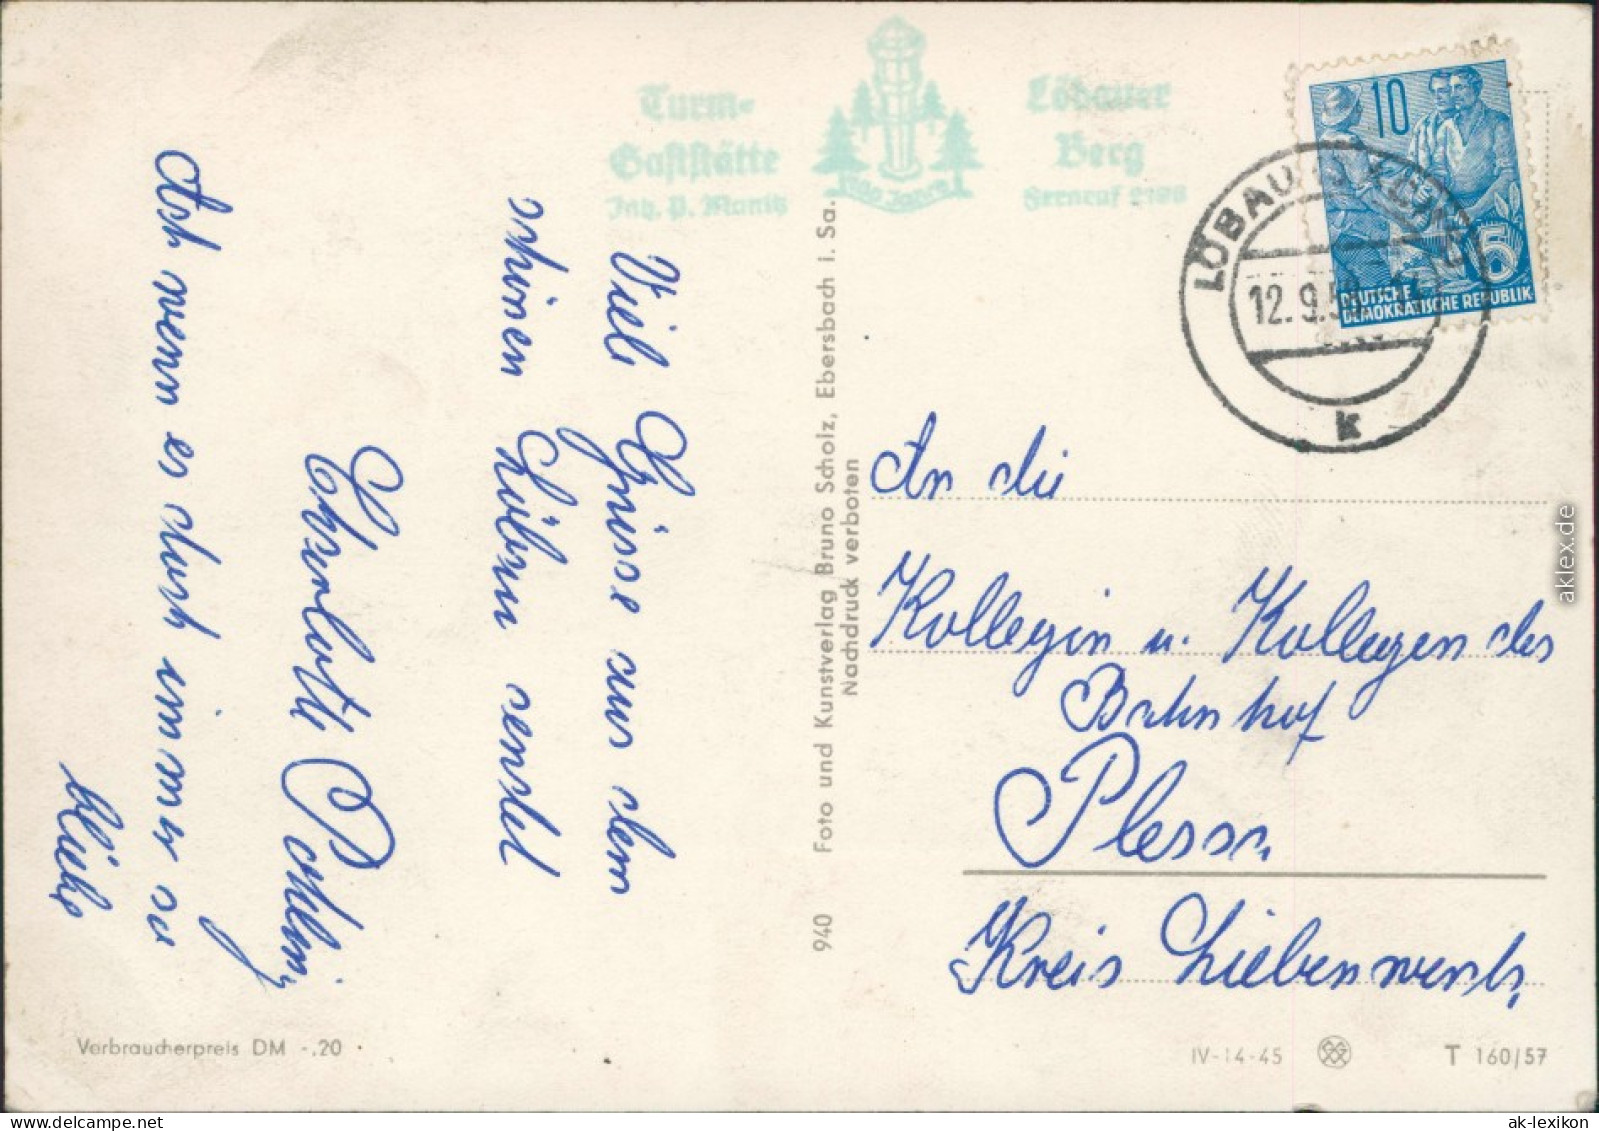 Turm-
Gaststätte
Inh. P. Manitz
Löbauer
Berg
Fernruf
Viele Grüsse aus dem
schönen Löbau sendet
Charlotte
Ach wenn es doch immer so
bliebe
940 Foto und Kunstverlag Bruno Scholz, Ebersbach i. Sa.
Nachdruck verboten
10
5
DEUTSCHE
DEMOKRATISCHE REPUBLIK
LÖBAU
12.9.5
k
An die
Kollegin u. Kollegen des
Bahnhof
Plessa
Kreis Liebenwerda
Verbraucherpreis DM -.20
IV-14-45
T 160/57
aklex.de
ak-lexikon